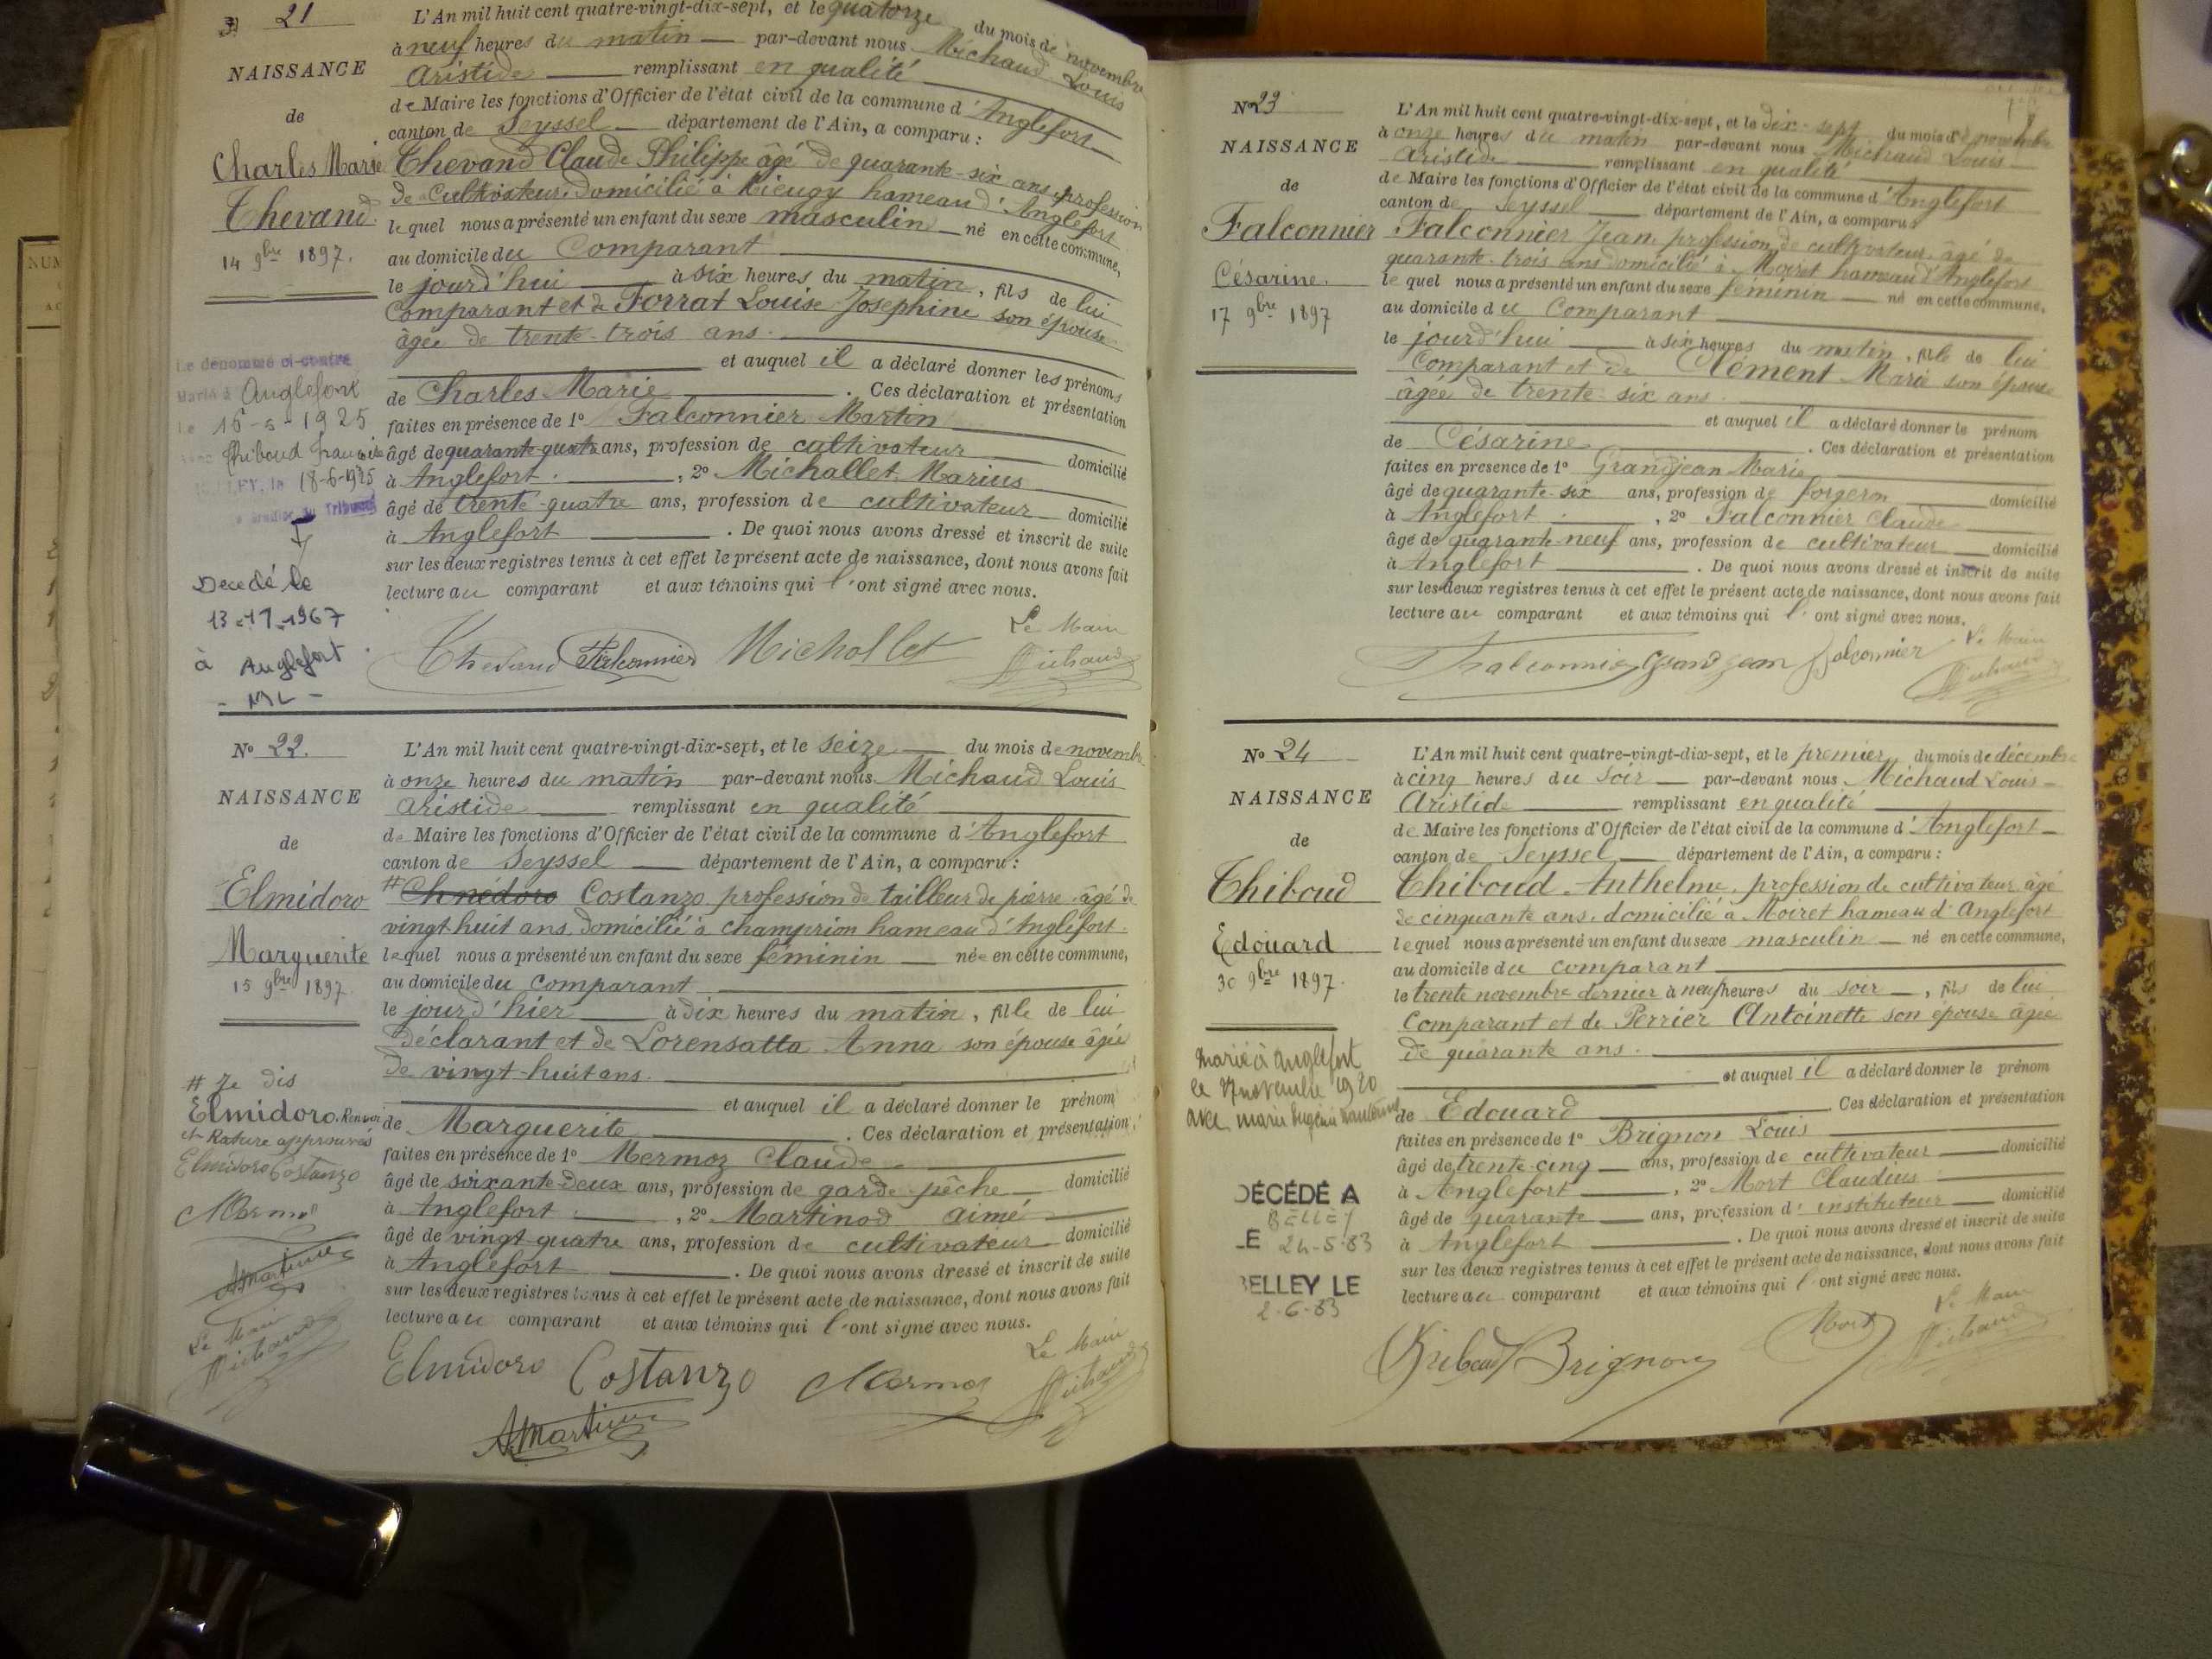 21
NAISSANCE
de
Charles Marie
Thevand
14 9bre 1897.
Le dénommé ci-contre
Marié à Anglefort
Le 16-5-1925
Thiboud
le 18-6-1925
Decedé le
13-11-1967
à Anglefort
L'An mil huit cent quatre-vingt-dix-sept, et le quatorze du mois de novembre
à neuf heures du matin par-devant nous Michaud Louis
Aristide remplissant en qualité
de Maire les fonctions d'Officier de l'état civil de la commune d'Anglefort
canton de Seyssel département de l'Ain, a comparu :
Thevand Claude Philippe âgé de quarante-six ans profession
de cultivateur domicilié à hameau d'Anglefort
lequel nous a présenté un enfant du sexe masculin né en cette commune,
au domicile du Comparant
le jourd'hui à six heures du matin, fils de lui
Comparant et de Forrat Louise Josephine son épouse
âgée de trente-trois ans.
et auquel il a déclaré donner les prénoms
de Charles Marie. Ces déclaration et présentation
faites en présence de 1º Falconnier Martin
âgé de quarante-quatre ans, profession de cultivateur domicilié
à Anglefort, 2º Michallet Marius
âgé de trente-quatre ans, profession de cultivateur domicilié
à Anglefort. De quoi nous avons dressé et inscrit de suite
sur les deux registres tenus à cet effet le présent acte de naissance, dont nous avons fait
lecture au comparant et aux témoins qui l'ont signé avec nous.
Thevand Falconnier Michallet
Le Maire
Michaud
Nº 22.
NAISSANCE
de
Elmidoro
Marguerite
15 9bre 1897
# Je dis
Elmidoro. Renvoi
et Rature approuvés
Elmidoro Costanzo
Mermoz
AMartinod
Le Maire
Michaud
L'An mil huit cent quatre-vingt-dix-sept, et le seize du mois de novembre
à onze heures du matin par-devant nous Michaud Louis
Aristide remplissant en qualité
de Maire les fonctions d'Officier de l'état civil de la commune d'Anglefort
canton de Seyssel département de l'Ain, a comparu :
# Costanzo profession de tailleur de pierre âgé de
vingt-huit ans, domicilié à Champrion hameau d'Anglefort.
lequel nous a présenté un enfant du sexe féminin née en cette commune,
au domicile du comparant
le jourd'hier à dix heures du matin, fille de lui
déclarant et de Lorensatta Anna son épouse âgée
de vingt-huit ans.
et auquel il a déclaré donner le prénom
de Marguerite. Ces déclaration et présentation
faites en présence de 1º Mermoz Claude
âgé de soixante-deux ans, profession de garde-pêche domicilié
à Anglefort, 2º Martinod aimé
âgé de vingt-quatre ans, profession de cultivateur domicilié
à Anglefort. De quoi nous avons dressé et inscrit de suite
sur les deux registres tenus à cet effet le présent acte de naissance, dont nous avons fait
lecture au comparant et aux témoins qui l'ont signé avec nous.
Elmidoro Costanzo Mermoz
Le Maire
Michaud
AMartinod
Nº 23
NAISSANCE
de
Falconnier
Césarine.
17 9bre 1897
L'An mil huit cent quatre-vingt-dix-sept, et le dix-sept du mois de novembre
à onze heures du matin par-devant nous Michaud Louis
Aristide remplissant en qualité
de Maire les fonctions d'Officier de l'état civil de la commune d'Anglefort
canton de Seyssel département de l'Ain, a comparu :
Falconnier Jean, profession de cultivateur, âgé de
quarante-trois ans domicilié à Moiret hameau d'Anglefort
lequel nous a présenté un enfant du sexe féminin né en cette commune,
au domicile du Comparant
le jourd'hui à six heures du matin, fille de lui
Comparant et de Clément Marie son épouse
âgée de trente-six ans.
et auquel il a déclaré donner le prénom
de Césarine. Ces déclaration et présentation
faites en présence de 1º Grandjean Marie
âgé de quarante-six ans, profession de forgeron domicilié
à Anglefort, 2º Falconnier Claude
âgé de quarante-neuf ans, profession de cultivateur domicilié
à Anglefort. De quoi nous avons dressé et inscrit de suite
sur les deux registres tenus à cet effet le présent acte de naissance, dont nous avons fait
lecture au comparant et aux témoins qui l'ont signé avec nous.
Falconnier Grandjean Falconnier
Le Maire
Michaud
Nº 24
NAISSANCE
de
Thiboud
Edouard
30 9bre 1897.
Marié à Anglefort
le 27 novembre 1920
avec marie Eugénie
DÉCÉDÉ A
BELLEY
LE 24-5-83
BELLEY LE
2-6-83
L'An mil huit cent quatre-vingt-dix-sept, et le premier du mois de décembre
à cinq heures du soir par-devant nous Michaud Louis
Aristide remplissant en qualité
de Maire les fonctions d'Officier de l'état civil de la commune d'Anglefort
canton de Seyssel département de l'Ain, a comparu :
Thiboud Anthelme, profession de cultivateur âgé
de cinquante ans, domicilié à Moiret hameau d'Anglefort
lequel nous a présenté un enfant du sexe masculin né en cette commune,
au domicile du comparant
le trente novembre dernier à neuf heures du soir, fils de lui
Comparant et de Perrier Antoinette son épouse âgée
de quarante ans.
et auquel il a déclaré donner le prénom
de Edouard. Ces déclaration et présentation
faites en présence de 1º Brignon Louis
âgé de trente-cinq ans, profession de cultivateur domicilié
à Anglefort, 2º Mort Claudius
âgé de quarante ans, profession d'instituteur domicilié
à Anglefort. De quoi nous avons dressé et inscrit de suite
sur les deux registres tenus à cet effet le présent acte de naissance, dont nous avons fait
lecture au comparant et aux témoins qui l'ont signé avec nous.
Thiboud Brignon Mort
Le Maire
Michaud